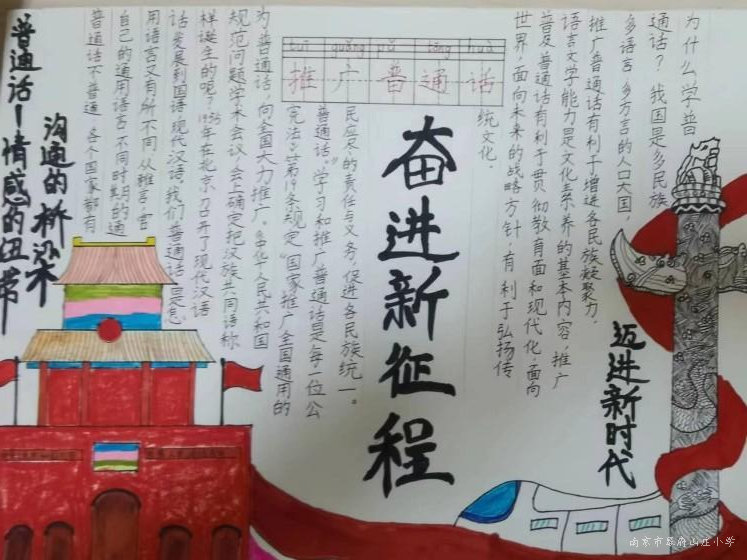 为什么学普
通话？我国是多民族
多语言，多方言的人口大国，
推广普通话有利于增进各民族凝聚力，
语言文字能力是文化素养的基本内容，推广
普及普通话有利于贯彻教育面和现代化，面向
世界，面向未来的战略方针，有利于弘扬传
统文化。
迈进新时代
tuī guǎng pǔ tōng huà
推广普通话
奋进新征程
民应尽的责任与义务，促进各民族统一。
普通话。”学习和推广普通话是每一位公
《宪法》第19条规定“国家推广全国通用的
为普通话，向全国大力推广，中华人民共和国
规范问题学术会议，会上确定把汉族共同语称
样诞生的呢？1955年在北京召开了现代汉语
话发展到国语，现代汉语。我们普通话是怎
用语言又有所不同，从雅言，官
自己的通用语言，不同时期的通
普通话不普通，各个国家都有
沟通的桥梁
普通话-情感的纽带
南京市翠府山庄小学